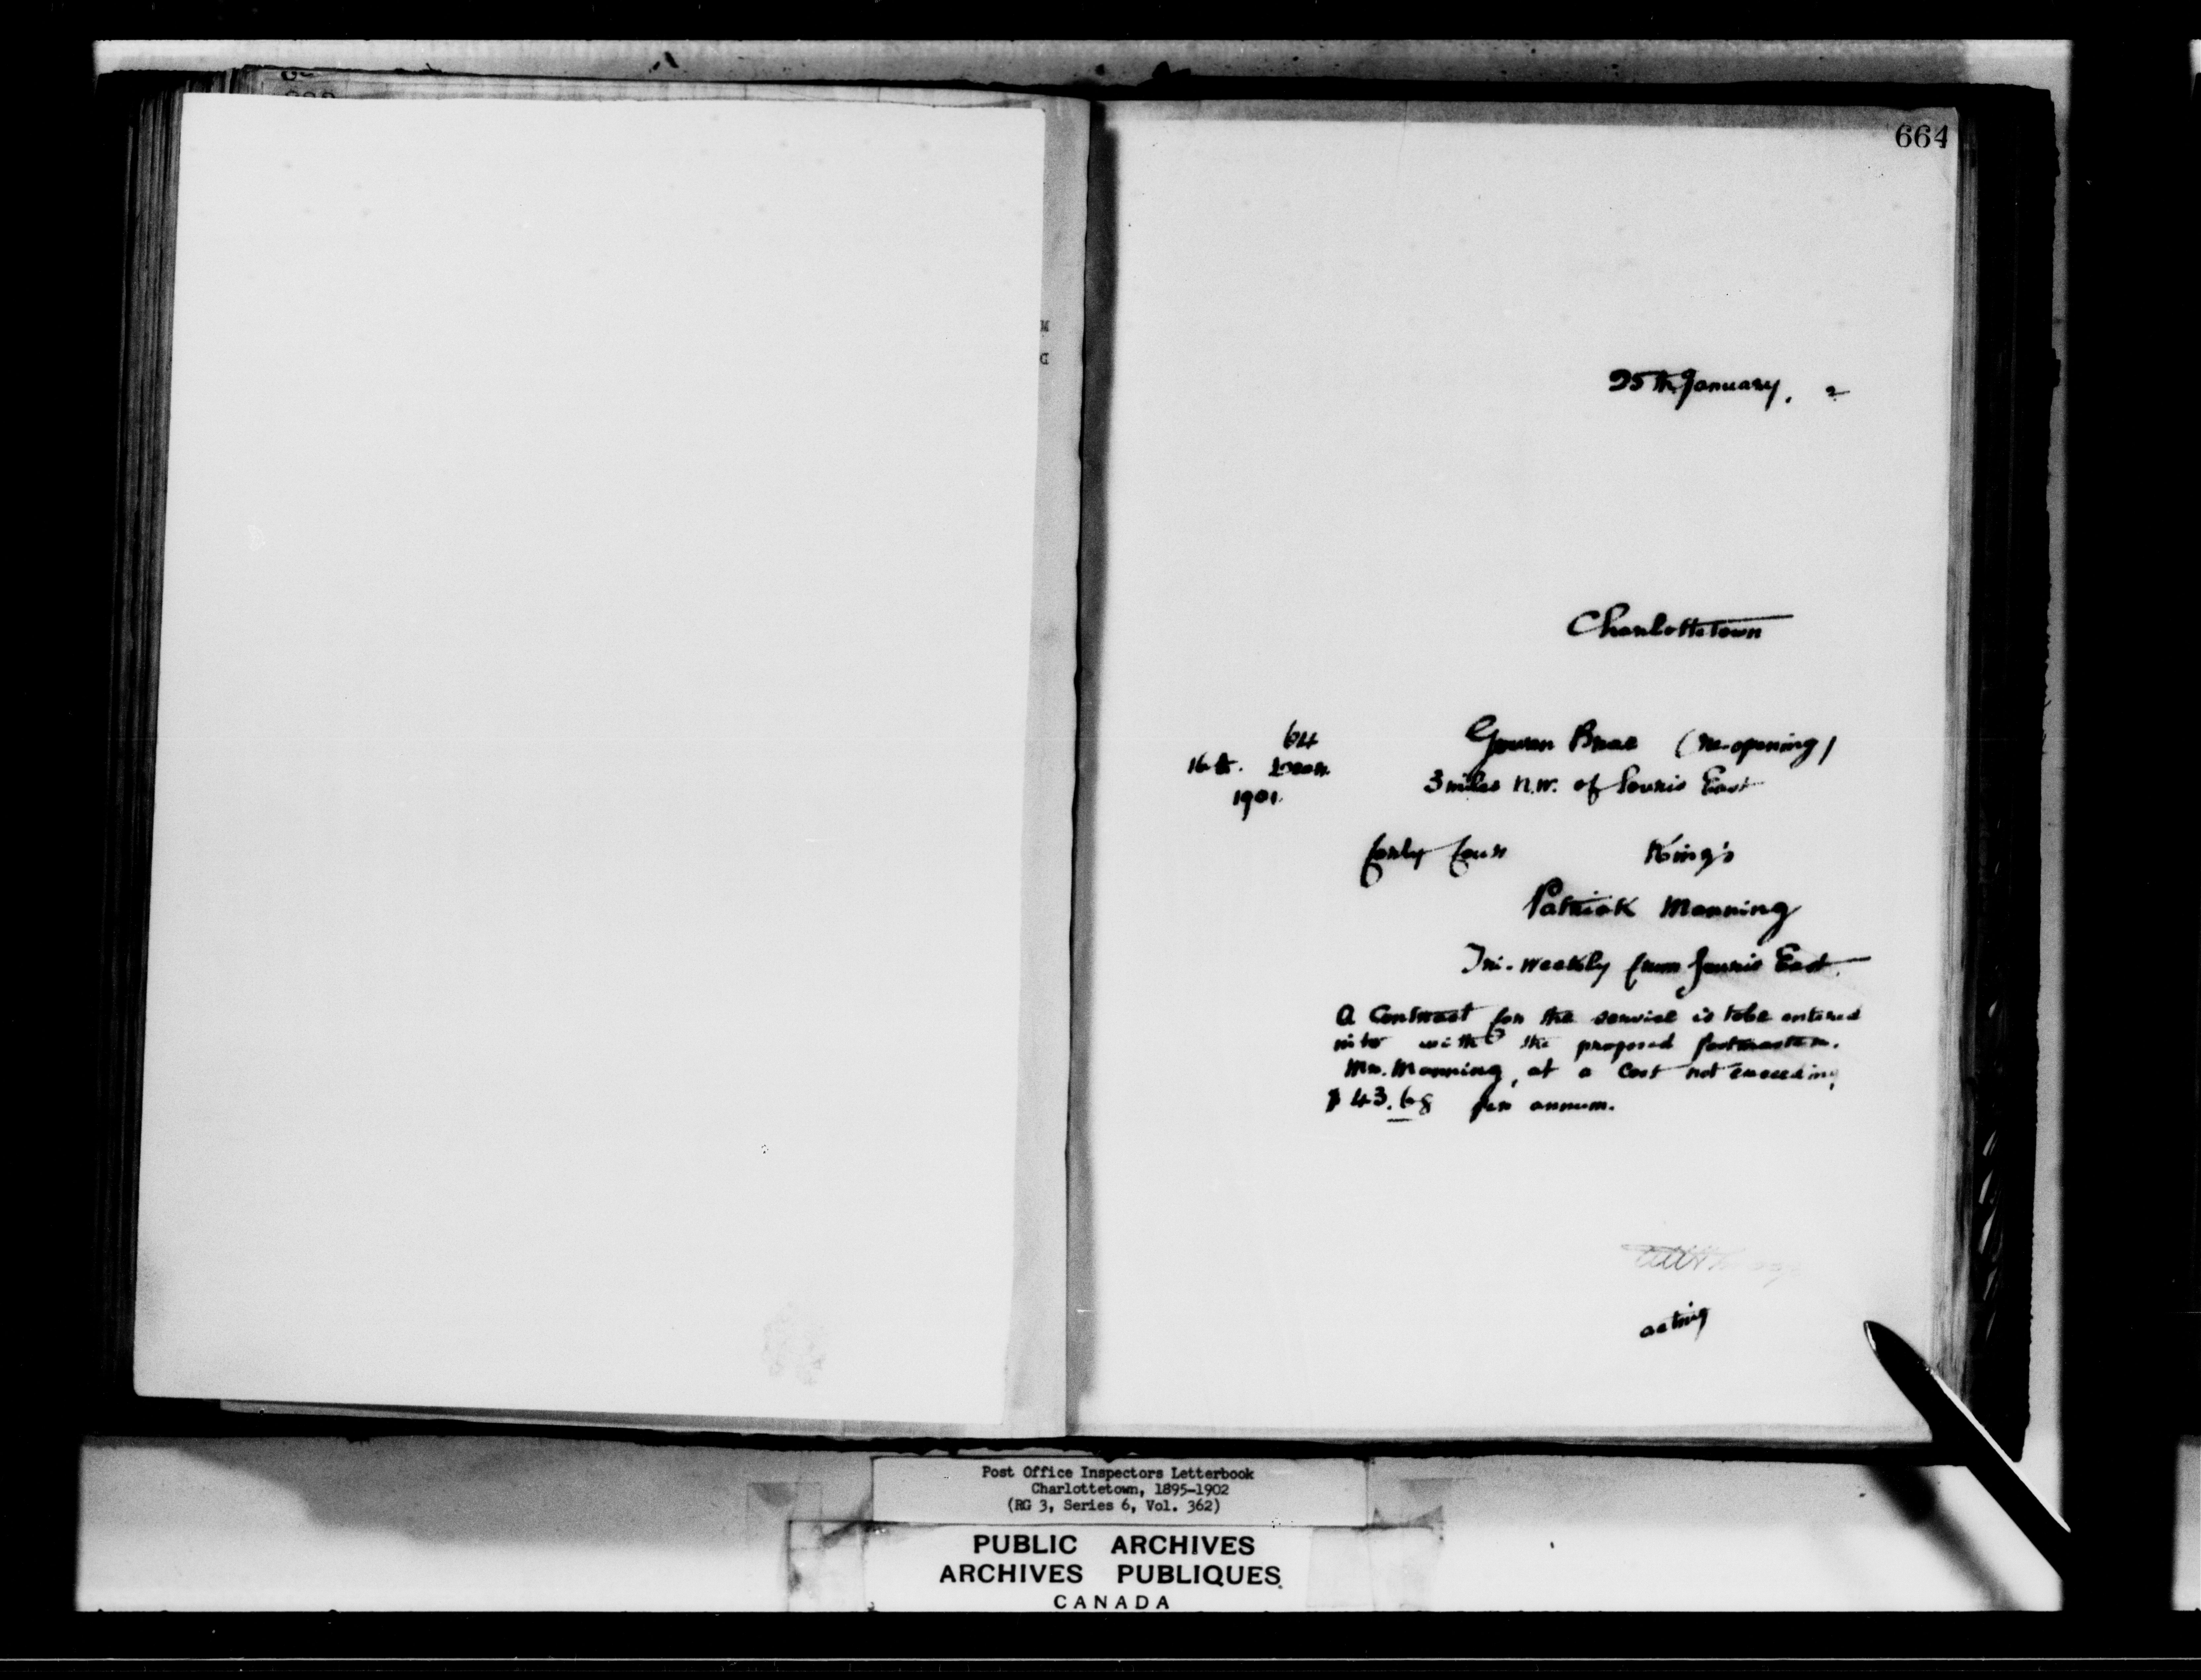 664
25th January, 2
Charlottetown
64
Gowan Brae (re-opening)
16th. Decr.
3 miles N.W. of Souris East
1901.
forty four King's
Patrick Manning
Tri-weekly from Souris East
A Contract for the service is to be entered
into with the proposed postmaster.
Mr. Manning, at a cost not exceeding
$43.68 per annum.
acting
Post Office Inspectors Letterbook
Charlottetown, 1895-1902
(RG 3, Series 6, Vol. 362)
PUBLIC ARCHIVES
ARCHIVES PUBLIQUES
CANADA